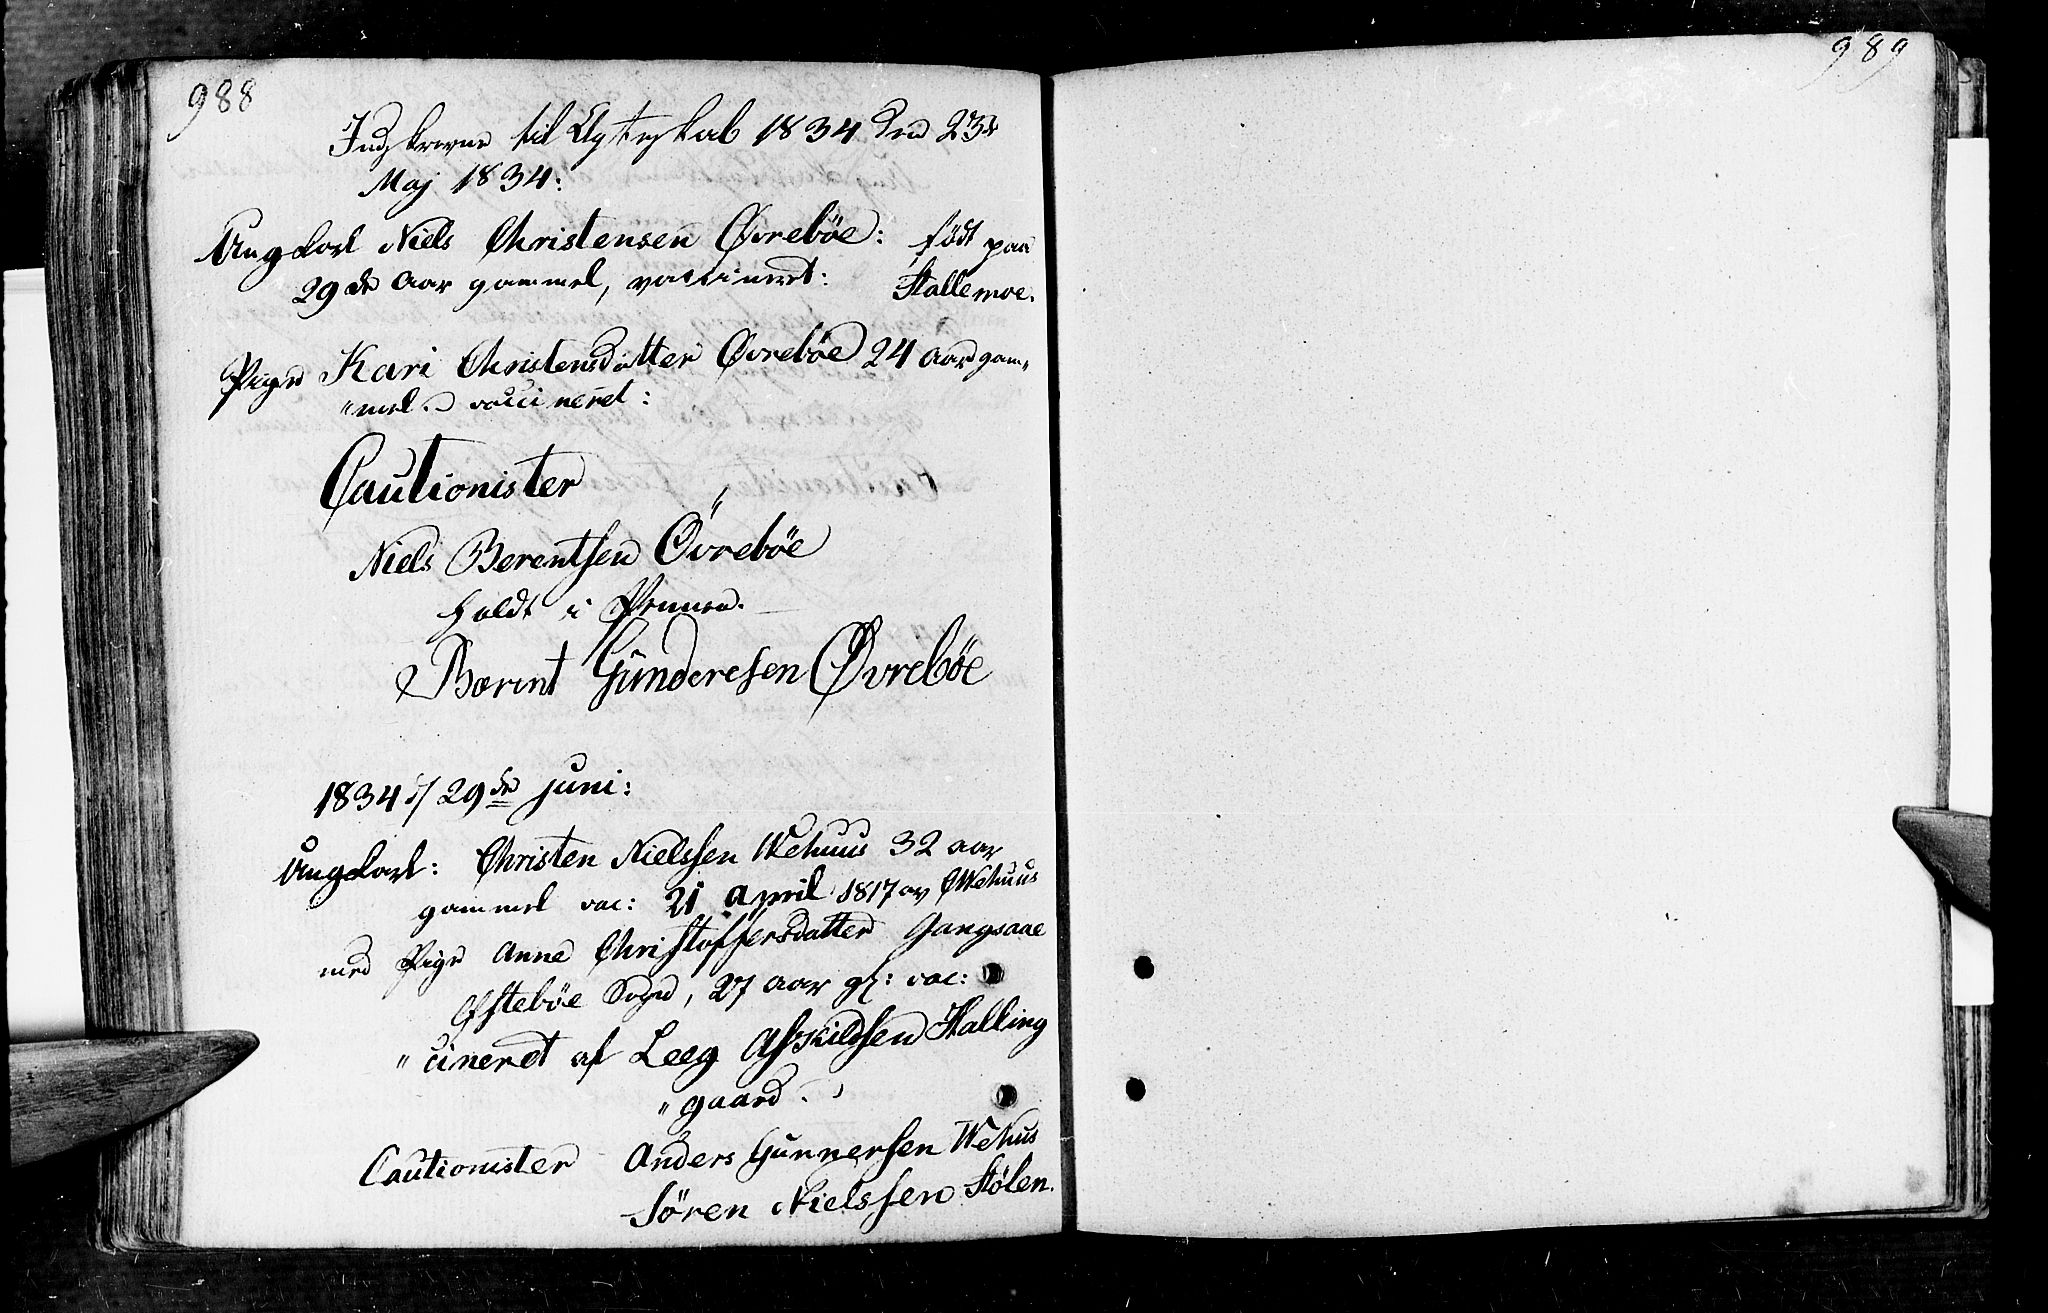 988
Indskrevne til Ægteskab 1834 den 23de
Maj 1834:
Ungkarl Niels Christensen Øvrebøe: født paa
29de Aar gammel, vaccineret: Stallemoe.
Pige Kari Christensdatter Øvrebøe 24 Aar gam„
„mel vaccineret:
Cautionister
Niels Berentsen Øvrebøe
holdt i Pennen.
Berent Gunderesen Øvrebøe
1834 d/ 29de juni:
Ungkarl: Christen Nielssen Wehuus 32 aar
gammel vac: 21 april 1817 av Wehuus
med Pige Anne Christoffersdatter Gangsaae
Øfstebøe Sogn, 27 aar gl: vac:
„cineret af Leeg Asskildsen Halling
„gaard.
Cautionister Anders Gunnersen Wehus
Sören Nielssen Stølen.
989